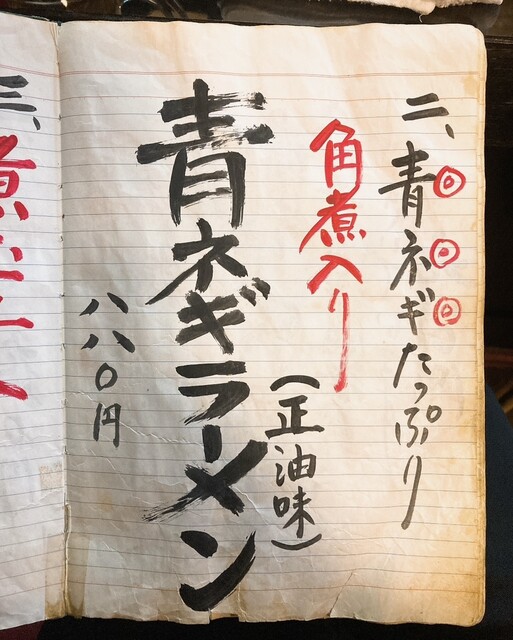 二、青ネギたっぷり
角煮入り
(正油味)
青ネギラーメン
八八〇円
三、